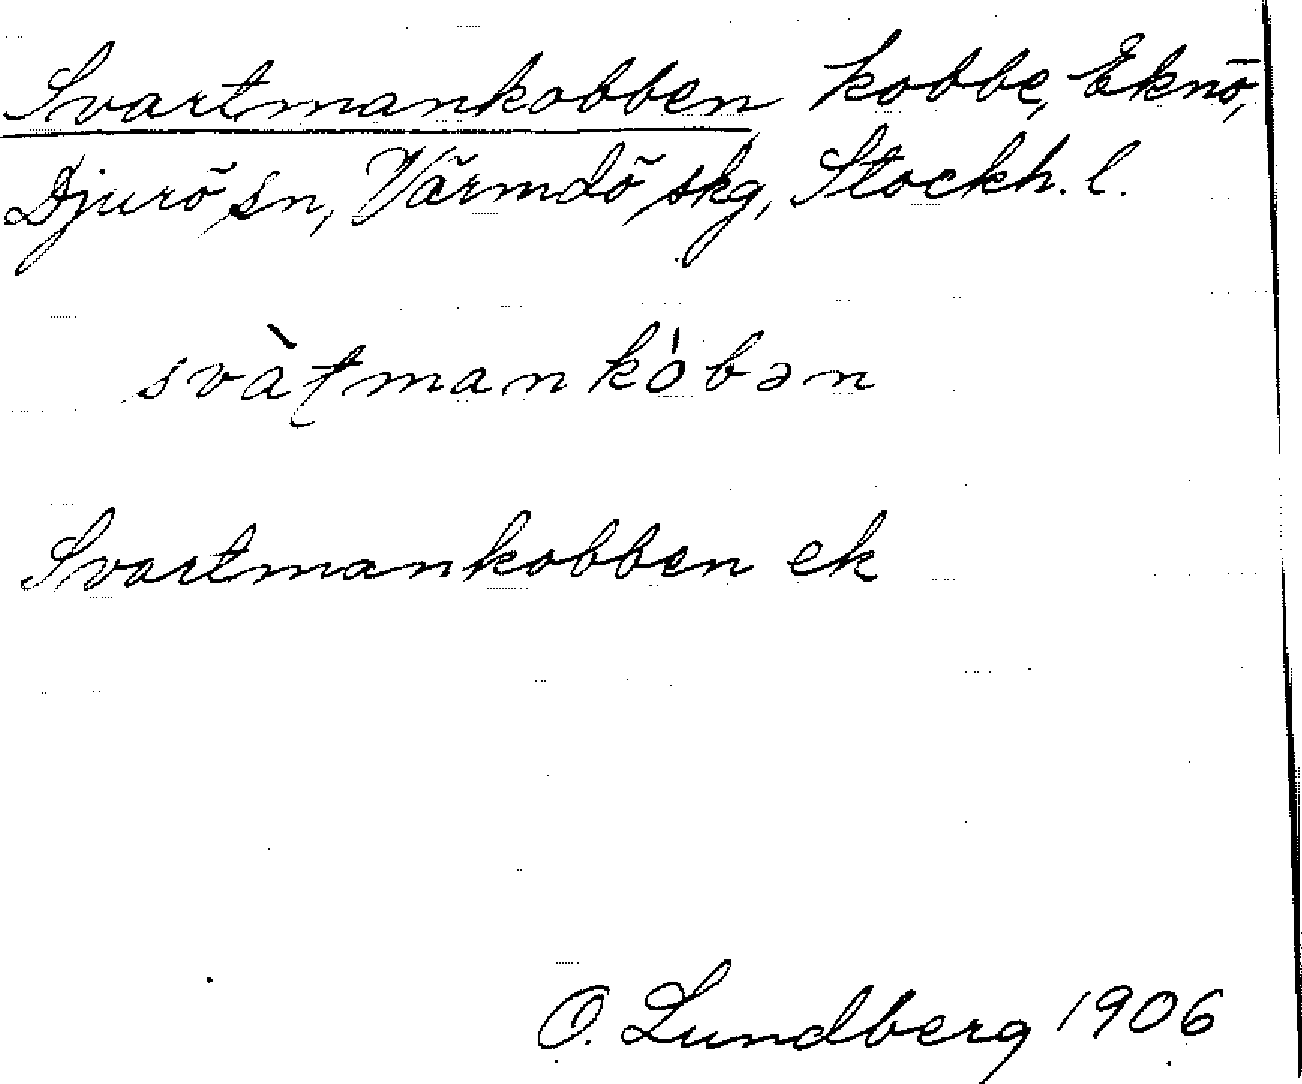 Svartmankobben kobbe, Eknö,
Djurö sn, Värmdö skg, Stockh. l.
svàt̨mankòbən
Svartmankobben ek
O. Lundberg 1906